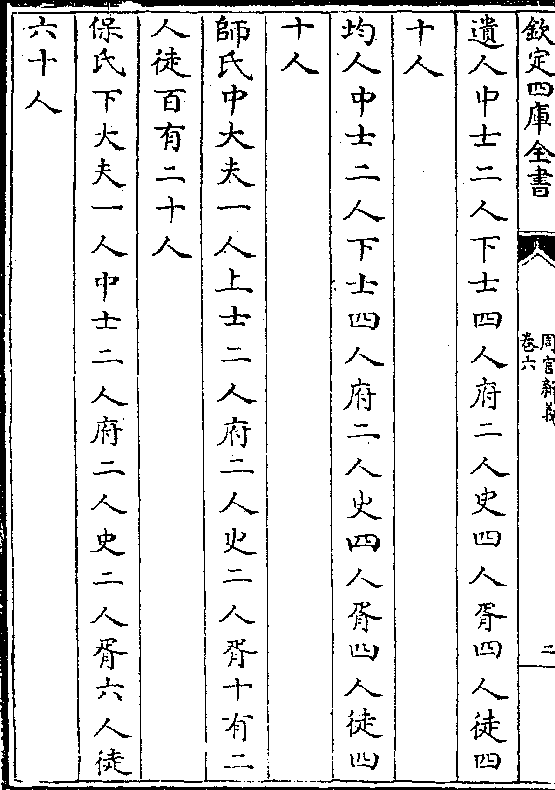 欽定四庫全書
周官新義
卷六
二
遺人中士二人下士四人府二人史四人胥四人徒四
十人
均人中士二人下士四人府二人史四人胥四人徒四
十人
師氏中大夫一人上士二人府二人史二人胥十有二
人徒百有二十人
保氏下大夫一人中士二人府二人史二人胥六人徒
六十人